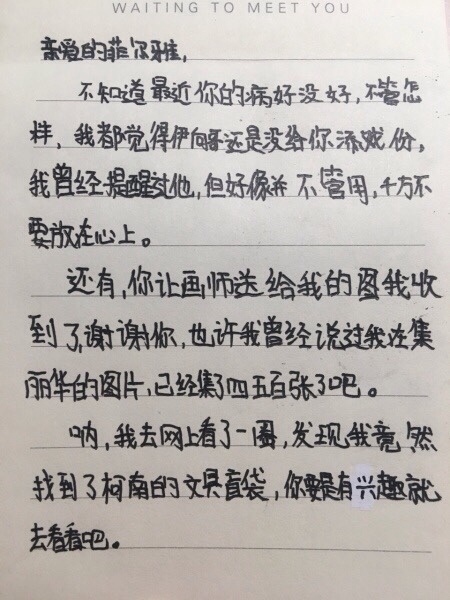 WAITING TO MEET YOU
亲爱的菲尔雅，
不知道最近你的病好没好，不管怎
样，我都觉得伊向哥还是没给你添戏份，
我曾经提醒过他，但好像并不管用，千万不
要放在心上。
还有，你让画师送给我的图我收
到了，谢谢你，也许我曾经说过我在集
丽华的图片，已经集了四五百张了吧。
呐，我去网上看了一圈，发现我竟然
找到了柯南的文具盲袋，你要是有兴趣就
去看看吧。